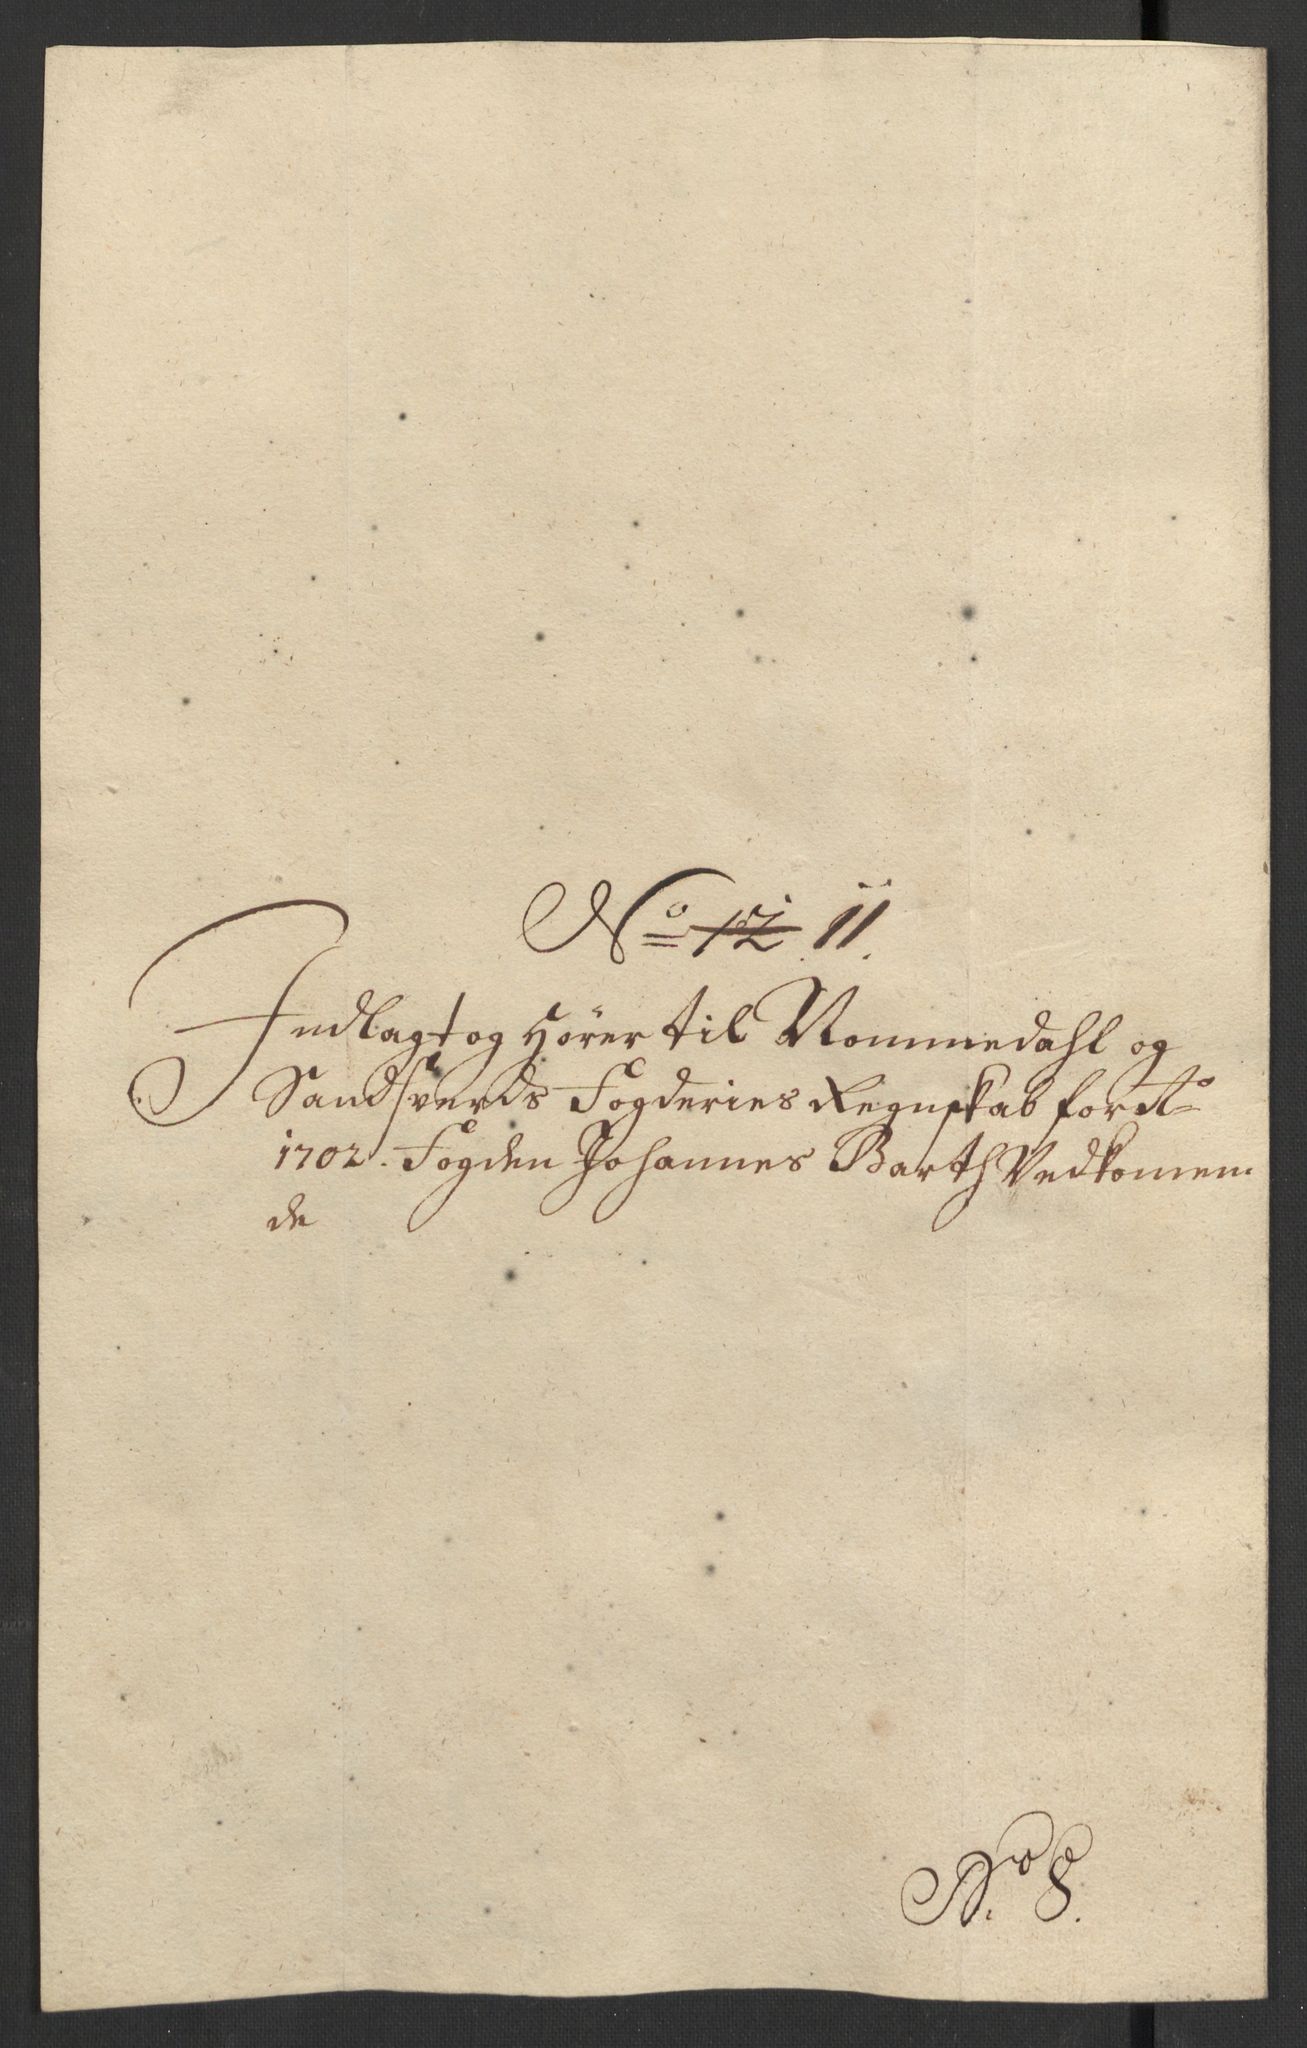 No 12 11.
Indlagt og Hörer til Nommedahl og
Sandsverds Fogderies Regnskab for Ao
1702. Fogden Johannes Barth Vedkomen
de
No 8.